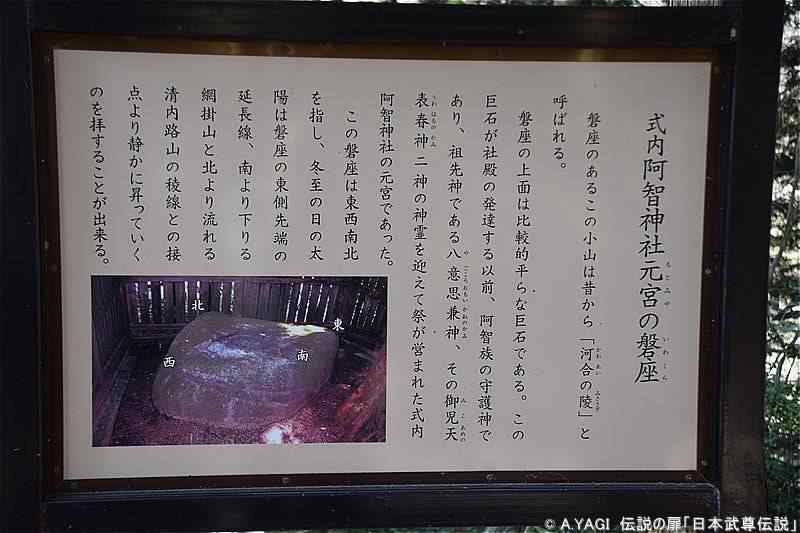 式内阿智神社元宮の磐座
もとみや
いわくら
磐座のあるこの小山は昔から「河合の陵」と
かわ あい
みささぎ
呼ばれる。
磐座の上面は比較的平らな巨石である。この
巨石が社殿の発達する以前、阿智族の守護神で
あり、祖先神である八意思兼神、その御児天
や ごころおもいかねのかみ
み こ あめの
表春神 二神の神霊を迎えて祭が営まれた式内
うわ はるの かみ
阿智神社の元宮であった。
この磐座は東西南北
を指し、冬至の日の太
陽は磐座の東側先端の
延長線、南より下りる
網掛山と北より流れる
清内路山の稜線との接
点より静かに昇っていく
のを拝することが出来る。
北
東
西
南
© A.YAGI 伝説の扉「日本武尊伝説」